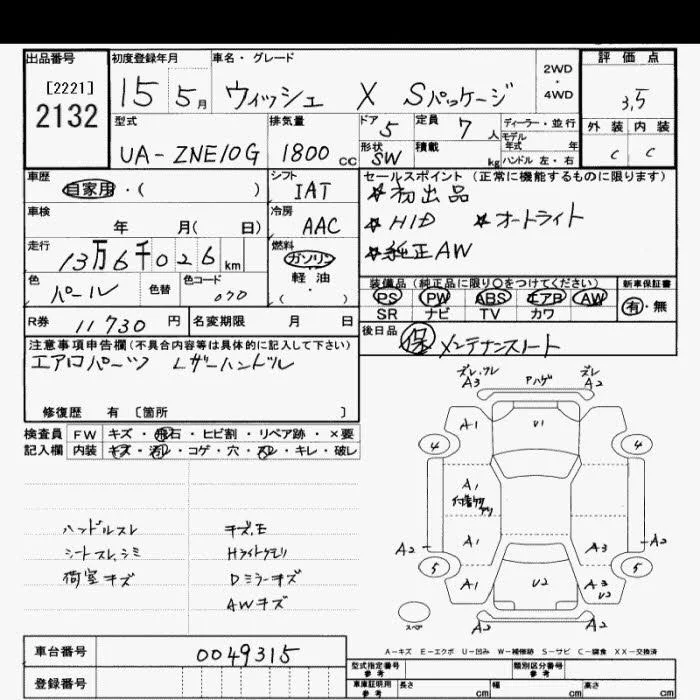 出品番号 初度登録年月 車名・グレード 2WD・4WD 評価点
[2221]
2132
15 5月 ウィッシュ X Sパッケージ 3.5
型式 排気量 ドア 5 定員 7人 ディーラー・並行 外装 内装
モデル年式 年
UA-ZNE10G 1800cc 形状 SW 積載 kg ハンドル 左・右 C C
車歴 シフト セールスポイント(正常に機能するものに限ります)
自家用・( ) IAT ☆初出品
車検 冷房 ☆HID ☆オートライト
年 月(日) AAC ☆純正AW
走行 燃料
13万6千026km ガソリン
軽油
・( )
色 色替 色コード 装備品(純正品に限り〇をつけてください) 新車保証書
パール 070 PS PW ABS エアB AW 有・無
SR ナビ TV カワ
R券 11730円 名変期限 月 日 後日品 保 メンテナンスノート
注意事項申告欄(不具合内容等は具体的に記入して下さい)
エアロパーツ Lザーハンドル
修復歴 有 [箇所 ]
検査員 FW キズ・飛石・ヒビ割・リペア跡・×要
記入欄 内装 キズ・汚レ・コゲ・穴・スレ・キレ・破レ
ハンドルスレ キズ,E
シートスレ,シミ Hライトクモリ
荷室キズ Dミラーキズ
AWキズ
ズレ,ワレ
A3 Aハゲ ズレ
A2
A1 U1
4 4
A1
付着物アリ
A1 A3
A2 A2
5 5
A1 U2 A3
U2
スペア
A2 A2
A-キズ E-エクボ U-凹み W-補修跡 S-サビ C-腐食 XX-交換済
車台番号 0049315
型式指定番号 参考 類別区分番号 参考
登録番号 車庫証明用 参考 長さ cm 幅 cm 高さ cm